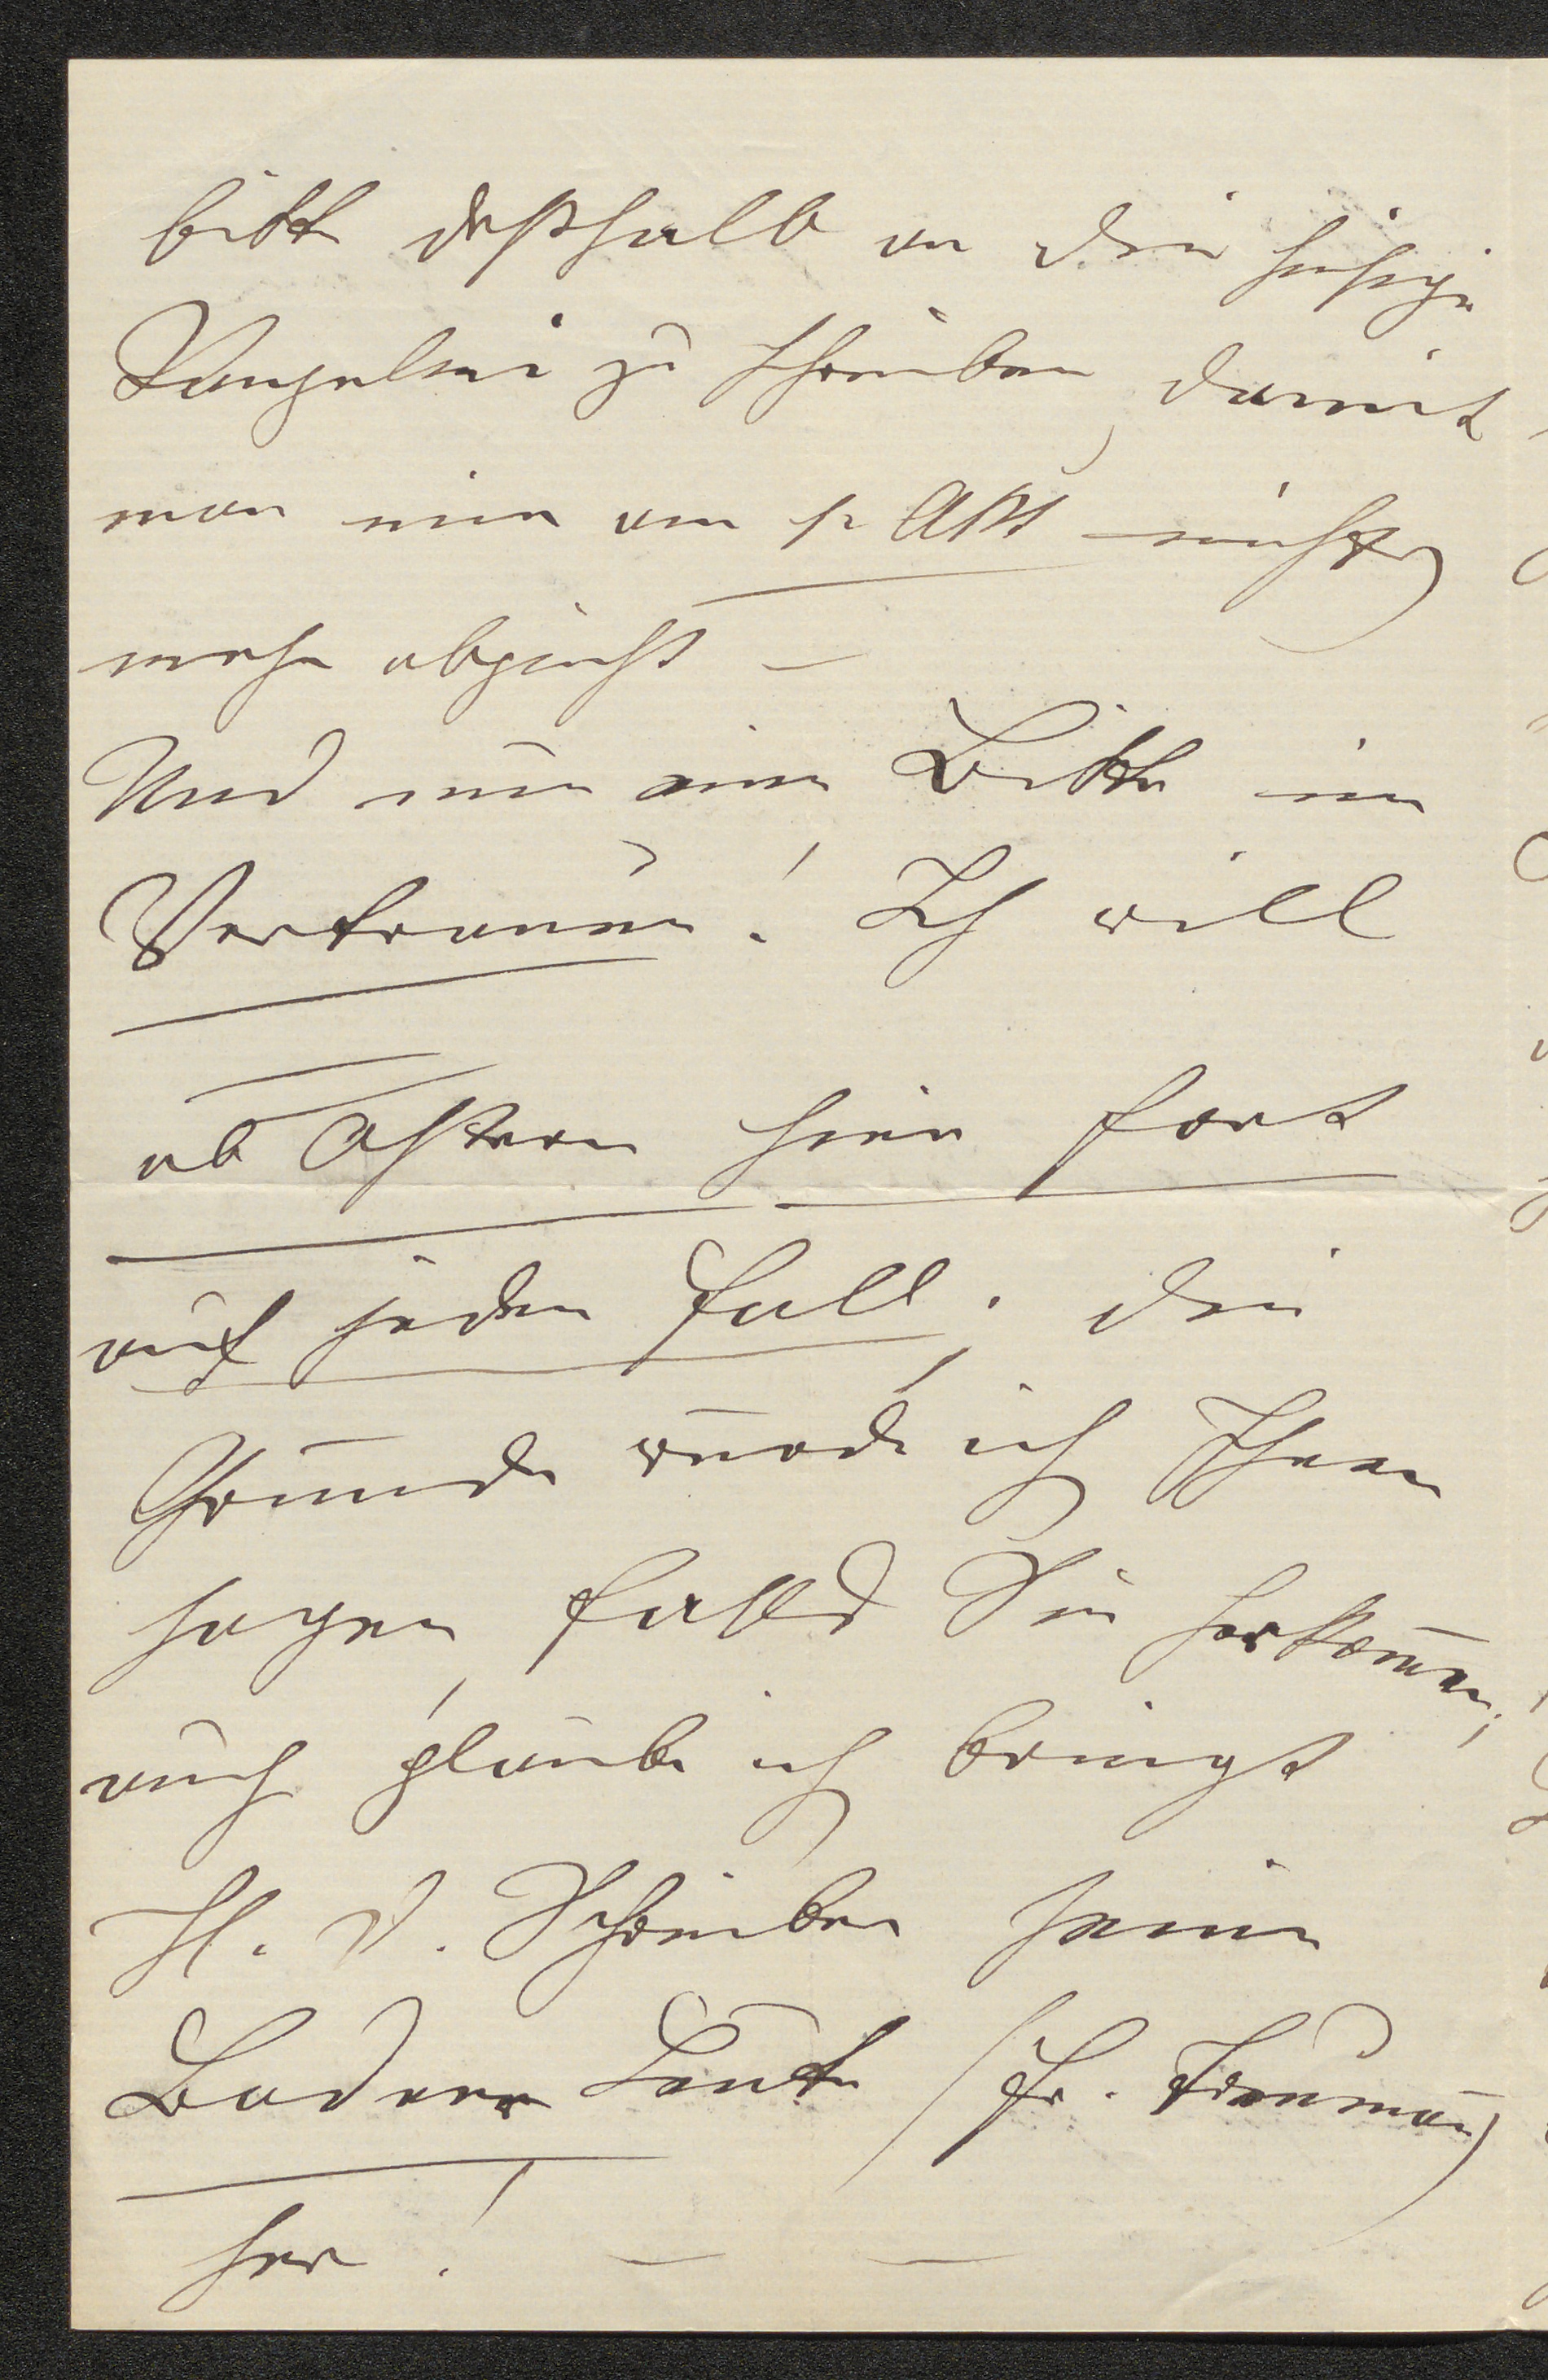 bitte deßhalb an die hiesige
Kanzelei zu schreiben, damit
man mir am 1. Okt nichts
mehr abzieht –
Und nun eine Bitte im
Vertrauen! Ich will
ab Ostern hier fort
auf jeden Fall; die
Gründe würde ich Ihnen
sagen, falls Sie herkom̄en;
auch glaube ich bringt
H. v. Schreiben seine
Badener Leute (Fr.
her! – –